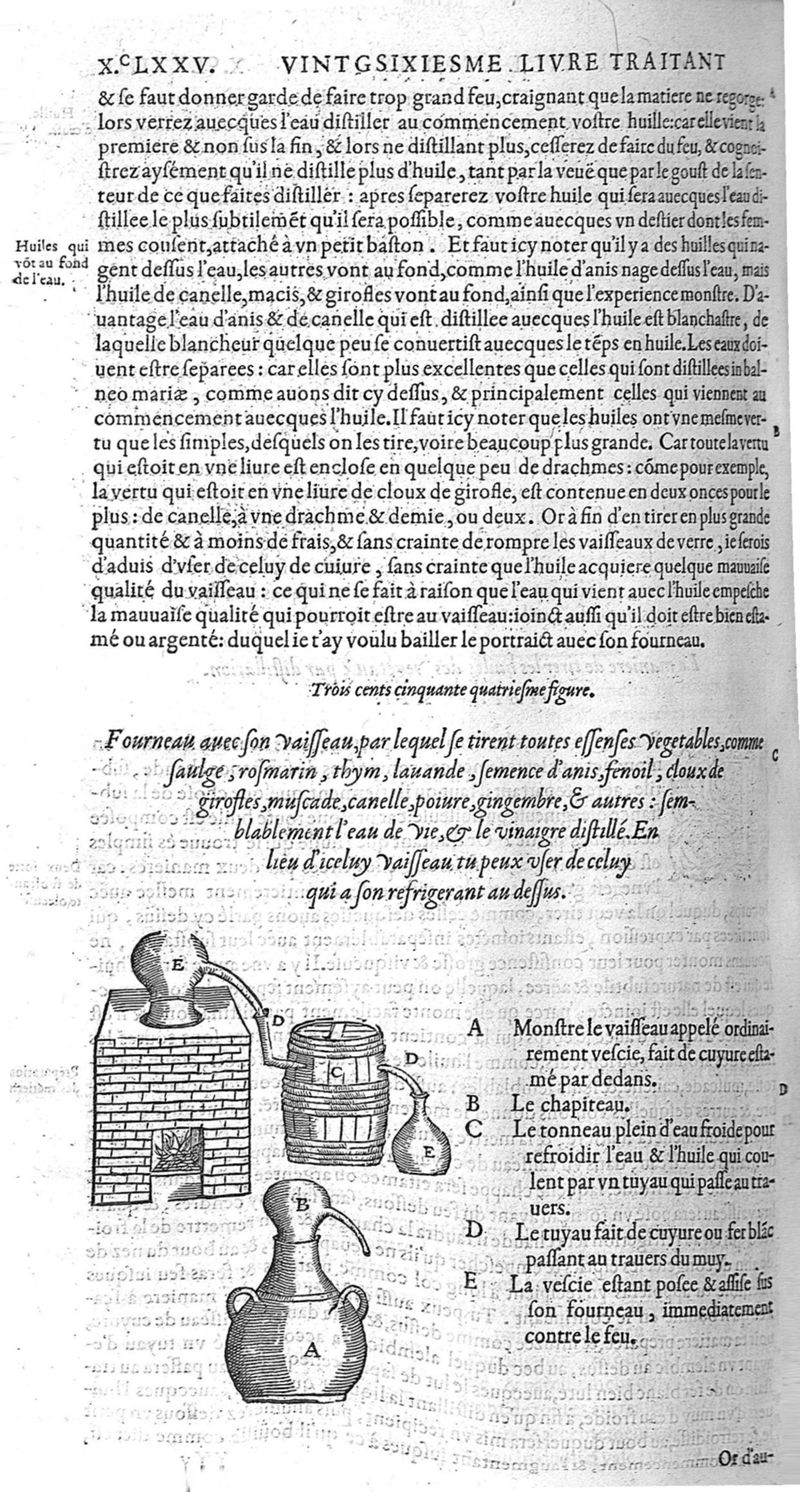 X.CLXXV. VINTGSIXIESME LIVRE TRAITANT
& se faut donner garde de faire trop grand feu, craignant que la matiere ne regorge:
lors verrez auecques l'eau distiller au commencement vostre huille: car elle vient la
premiere & non sus la fin, & lors ne distillant plus, cesserez de faire du feu, & cognoi-
strez aysément qu'il ne distille plus d'huile, tant par la veuë que par le goust de la sen-
teur de ce que faites distiller: apres separerez vostre huile qui sera auecques l'eau di-
stillee le plus subtilemẽt qu'il sera possible, comme auecques vn destier dont les fem-
Huiles qui
võt au fond
de l'eau.
mes cousent, attaché à vn petit baston. Et faut icy noter qu'il y a des huilles qui na-
gent dessus l'eau, les autres vont au fond, comme l'huile d'anis nage dessus l'eau, mais
l'huile de canelle, macis, & girofles vont au fond, ainsi que l'experience monstre. D'a-
uantage l'eau d'anis & de canelle qui est distillee auecques l'huile est blanchastre, de
laquelle blancheur quelque peu se conuertist auecques le tẽps en huile. Les eaux doi-
uent estre separees: car elles sont plus excellentes que celles qui sont distillees in bal-
neo mariæ, comme auons dit cy dessus, & principalement celles qui viennent au
commencement auecques l'huile. Il faut icy noter que les huiles ont vne mesme ver-
B
tu que les simples, desquels on les tire, voire beaucoup plus grande. Car toute la vertu
qui estoit en vne liure est enclose en quelque peu de drachmes: cõme pour exemple,
la vertu qui estoit en vne liure de cloux de girofle, est contenue en deux onces pour le
plus: de canelle, à vne drachme & demie, ou deux. Or à fin d'en tirer en plus grande
quantité & à moins de frais, & sans crainte de rompre les vaisseaux de verre, ie serois
d'aduis d'vser de celuy de cuiure, sans crainte que l'huile acquiere quelque mauuaise
qualité du vaisseau: ce qui ne se fait à raison que l'eau qui vient auec l'huile empesche
la mauuaise qualité qui pourroit estre au vaisseau: ioinct aussi qu'il doit estre bien esta-
mé ou argenté: duquel ie t'ay voulu bailler le portraict auec son fourneau.
Trois cents cinquante quatriesme figure.
Fourneau auec son vaisseau, par lequel se tirent toutes essenses vegetables, comme
C
saulge, rosmarin, thym, lauande, semence d'anis, fenoil, cloux de
girofles, muscade, canelle, poiure, gingembre, & autres: sem-
blablement l'eau de vie, & le vinaigre distillé. En
lieu d'iceluy vaisseau, tu peux vser de celuy
qui a son refrigerant au dessus.
E
D
C
D
E
B
A
A Monstre le vaisseau appelé ordinai-
rement vescie, fait de cuyure esta-
mé par dedans.
D
B Le chapiteau.
C Le tonneau plein d'eau froide pour
refroidir l'eau & l'huile qui cou-
lent par vn tuyau qui passe au tra-
uers.
D Le tuyau fait de cuyure ou fer blãc
passant au trauers du muy.
E La vescie estant posee & assise sus
son fourneau, immediatement
contre le feu.
Or d'au-